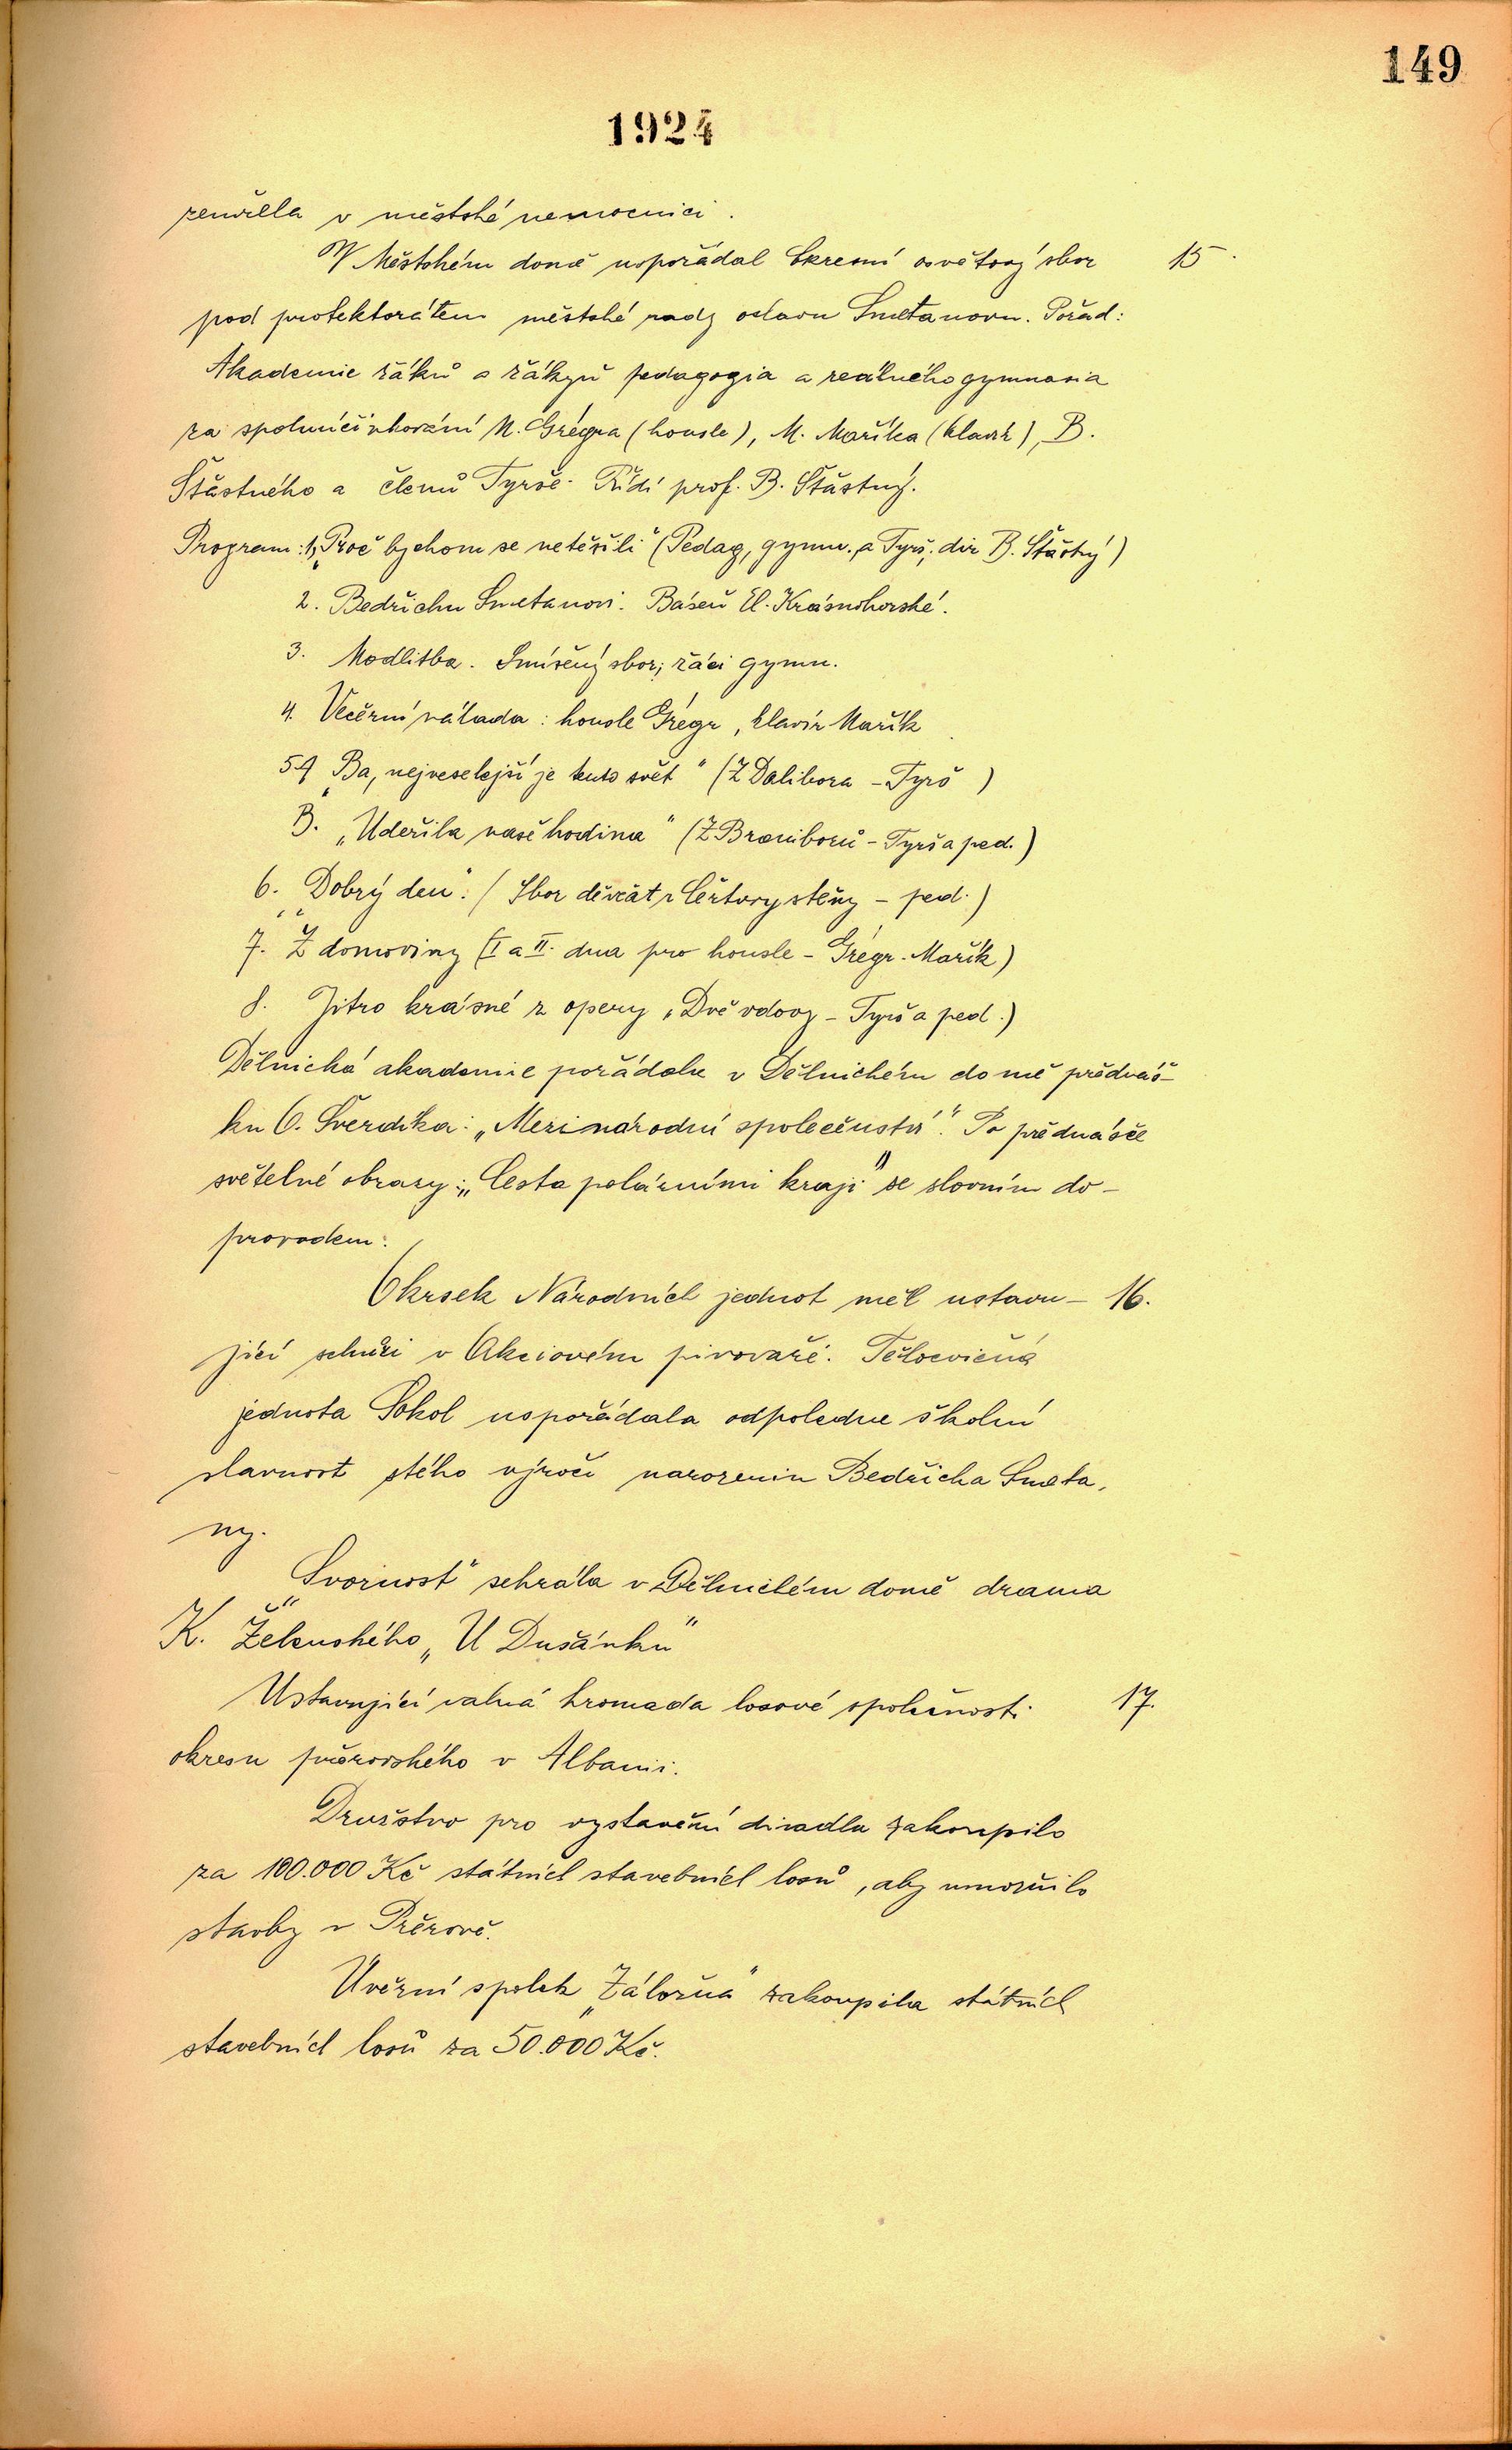 149
1924
zemřela v městské nemocnici.
V Městském domě uspořádal Okresní osvětový sbor 15.
pod protektorátem městské rady oslavu Smetanovu. Pořad:
Akademie žáků a žákyň pedagogia a reálného gymnasia
za spoluúčinkování M. Grégra (housle), M. Maříka (klavír), B.
Šťastného a členů Tyrše. Řídí prof. B. Šťastný.
Program: 1, „Proč bychom se netěšili" (Pedag, gymn. a Tyrš; dir B. Šťastný)
2. Bedřichu Smetanovi. Báseň El. Krásnohorské.
3. Modlitba. Smíšený sbor; žáci gymn.
4. Večerní nálada: housle Grégr, klavír Mařík
5A „Ba, nejveselejší je tento svět" (Z Dalibora – Tyrš)
B. „Udeřila naše hodina" (Z Braniborů – Tyrš a ped.)
6. „Dobrý den". (Sbor děvčat z Čertovy stěny – ped.)
7. „Z domoviny (I a II. dua pro housle – Grégr. Mařík)
8. Jitro krásné z opery „Dvě vdovy – Tyrš a ped.)
Dělnická akademie pořádala v Dělnickém domě přednáš-
ku O. Sverdíka: „Mezinárodní společenství". Po přednášce
světelné obrazy: „Cesta polárními kraji" se slovním do-
provodem.
Okrsek Národních jednot měl ustavu- 16.
jící schůzi v Akciovém pivovaře. Tělocvičná
jednota Sokol uspořádala odpoledne školní
slavnost stého výročí narozenin Bedřicha Smeta,
ny.
„Svornost" sehrála v Dělnickém domě drama
K. Želenského „U Dušánků"
Ustavující valná hromada losové společnosti 17.
okresu přerovského v Albanii.
Družstvo pro vystavění divadla zakoupilo
za 100.000 Kč státních stavebních losů, aby umožnilo
stavby v Přerově.
Úvěrní spolek „Záložna" zakoupila státních
stavebních losů za 50.000 Kč.